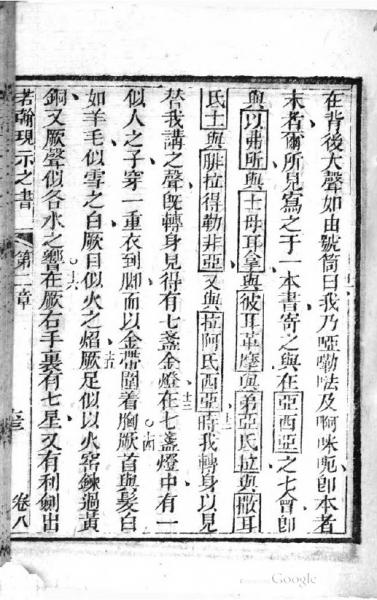 在背後大聲如由號筒曰我乃啞嘞𠵽及啊咪呃卽本者
末者爾所見寫之于一本書寄之與在亞西亞之七會卽
與以弗所與士母耳拿與彼耳革摩與弟亞氏拉與撒耳
氏士與腓拉得勒非亞又與拉阿氏西亞時我轉身以見
十二
替我講之聲旣轉身見得有七盞金燈在七盞燈中有一
十三
似人之子穿一重衣到脚而以金帶圍着胸厥首與髮白
十四
如羊毛似雪之白厥目似火之焰厥足似以火窰鍊過黃
十五
銅又厥聲似各水之響在厥右手裏有七星又有利劍出
十六
若翰現示之書
第一章
卷八
Google